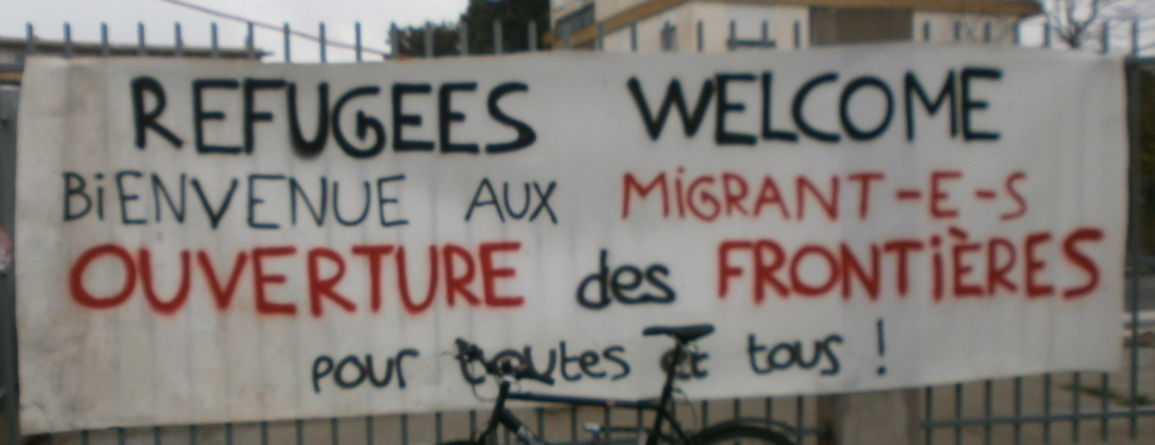 REFUGEES WELCOME
BiENVENUE AUX MiGRANT-E-S
OUVERTURE des FRONTiÈRES
pour toutes et tous !